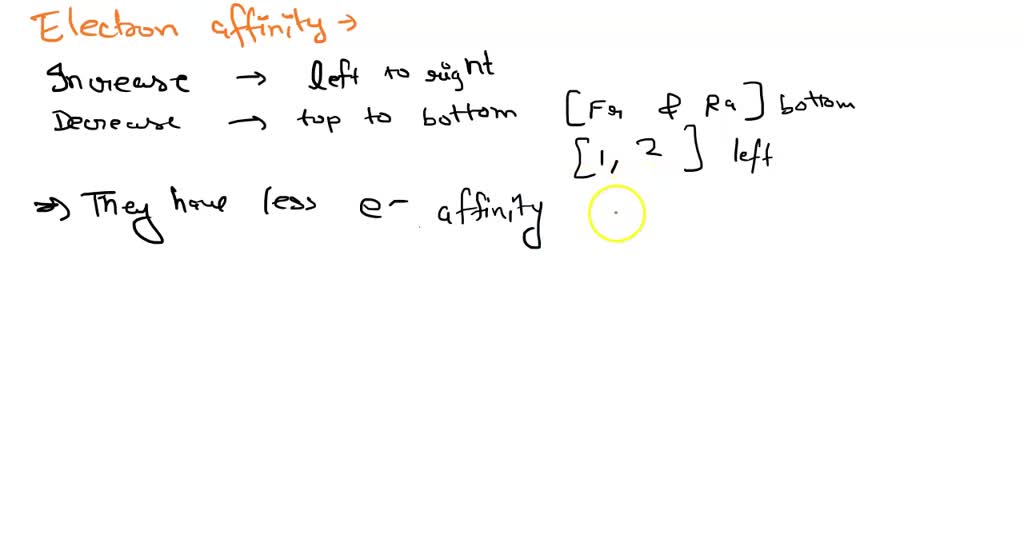 Electron affinity →
Increase → left to right
Decrease → top to bottom [Fr & Ra] bottom
[1, 2] left
⇒ They have less e- affinity